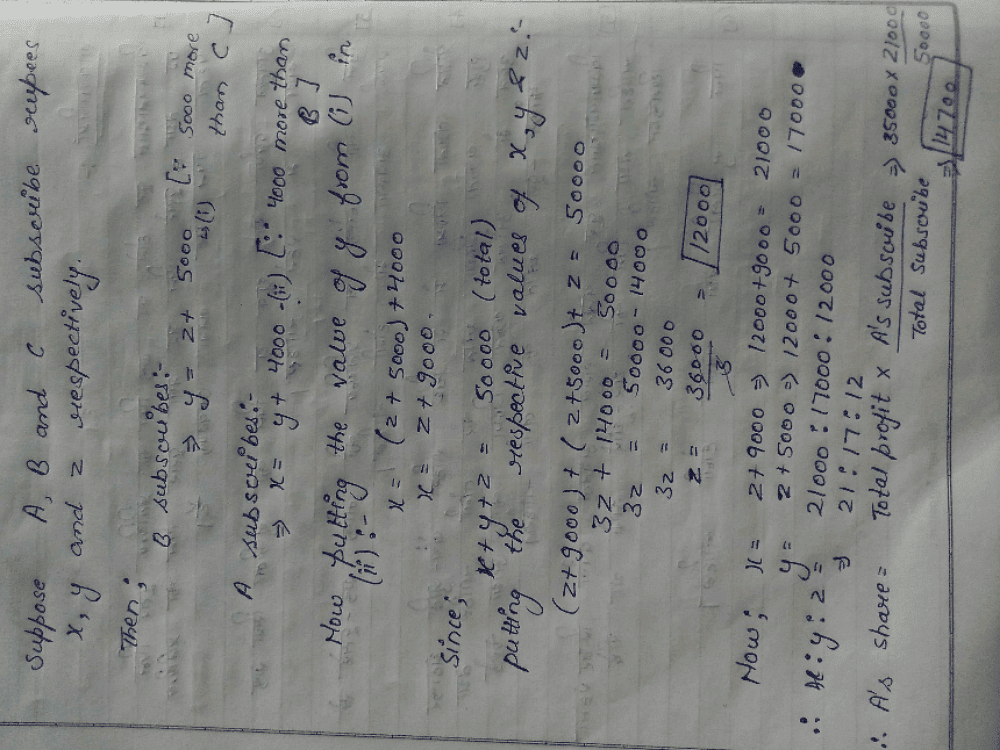 Suppose A, B and C subscribe rupees
x, y and z respectively.
Then;
B subscribes:-
⇒ y = z + 5000 [∵ 5000 more
↳(i) than C]
A subscribes:-
⇒ x = y + 4000 -(ii) [∵ 4000 more than
B]
Now putting the value of y from (i) in
(ii):-
x = (z + 5000) + 4000
x = z + 9000.
Since;
x + y + z = 50000 (total)
putting the respective values of x, y & z:-
(z + 9000) + (z + 5000) + z = 50000
3z + 14000 = 50000
3z = 50000 - 14000
3z = 36000
z = 36000/3 = 12000
Now; x = z + 9000 ⇒ 12000 + 9000 = 21000
y = z + 5000 ⇒ 12000 + 5000 = 17000
∴ x : y : z = 21000 : 17000 : 12000
⇒ 21 : 17 : 12
∴ A's share = Total profit × A's subscribe / Total subscribe ⇒ 35000 × 21000/50000
⇒ 14700